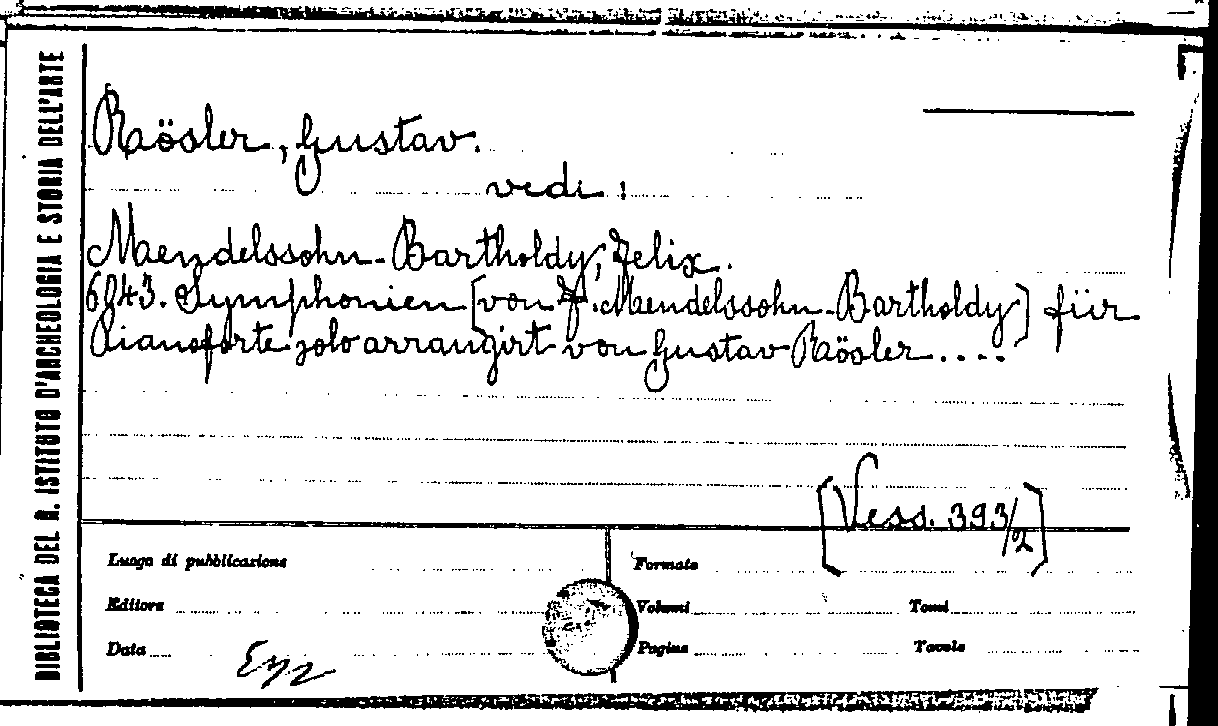 BIBLIOTECA DEL R. ISTITUTO D'ARCHEOLOGIA E STORIA DELL'ARTE
Rösler, Gustav.
vedi:
Mendelssohn-Bartholdy, Felix.
6843. Symphonien [von F. Mendelssohn-Bartholdy] für
Pianoforte solo arrangirt von Gustav Rösler....
[Vess. 393/2]
Luogo di pubblicazione
Formato
Editore
Volumi
Tomi
Data
Pagine
Tavole